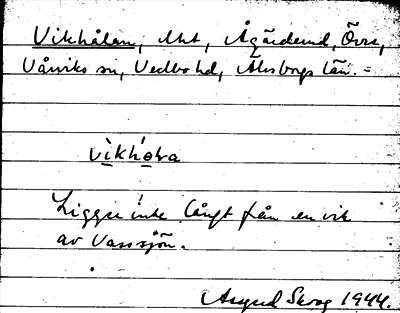 Vikhålan, Mht, Ågärdemd, Övre,
Vårviks sn, Vedbo hd, Älvsborgs län.
vìkhóva
Ligger inte långt från en vik
av Vassjön.
Astrid Skog 1944.